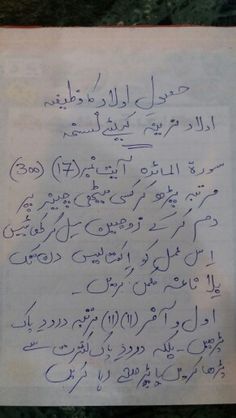 حصولِ اولاد کا وظیفہ
اولاد نرینہ کیلئے نسخہ
سورۃ المائدہ آیت نمبر (17) (300)
مرتبہ پڑھ کر کسی میٹھی چیز پر
دم کر کے زوجین مل کر کھائیں
اس عمل کو اکتالیس دن تک
بلا ناغہ مکمل کریں۔
اول و آخر (11) (11) مرتبہ درود پاک
پڑھیں۔ بلکہ درود پاک کثرت سے
پڑھا کریں پڑھتے رہا کریں